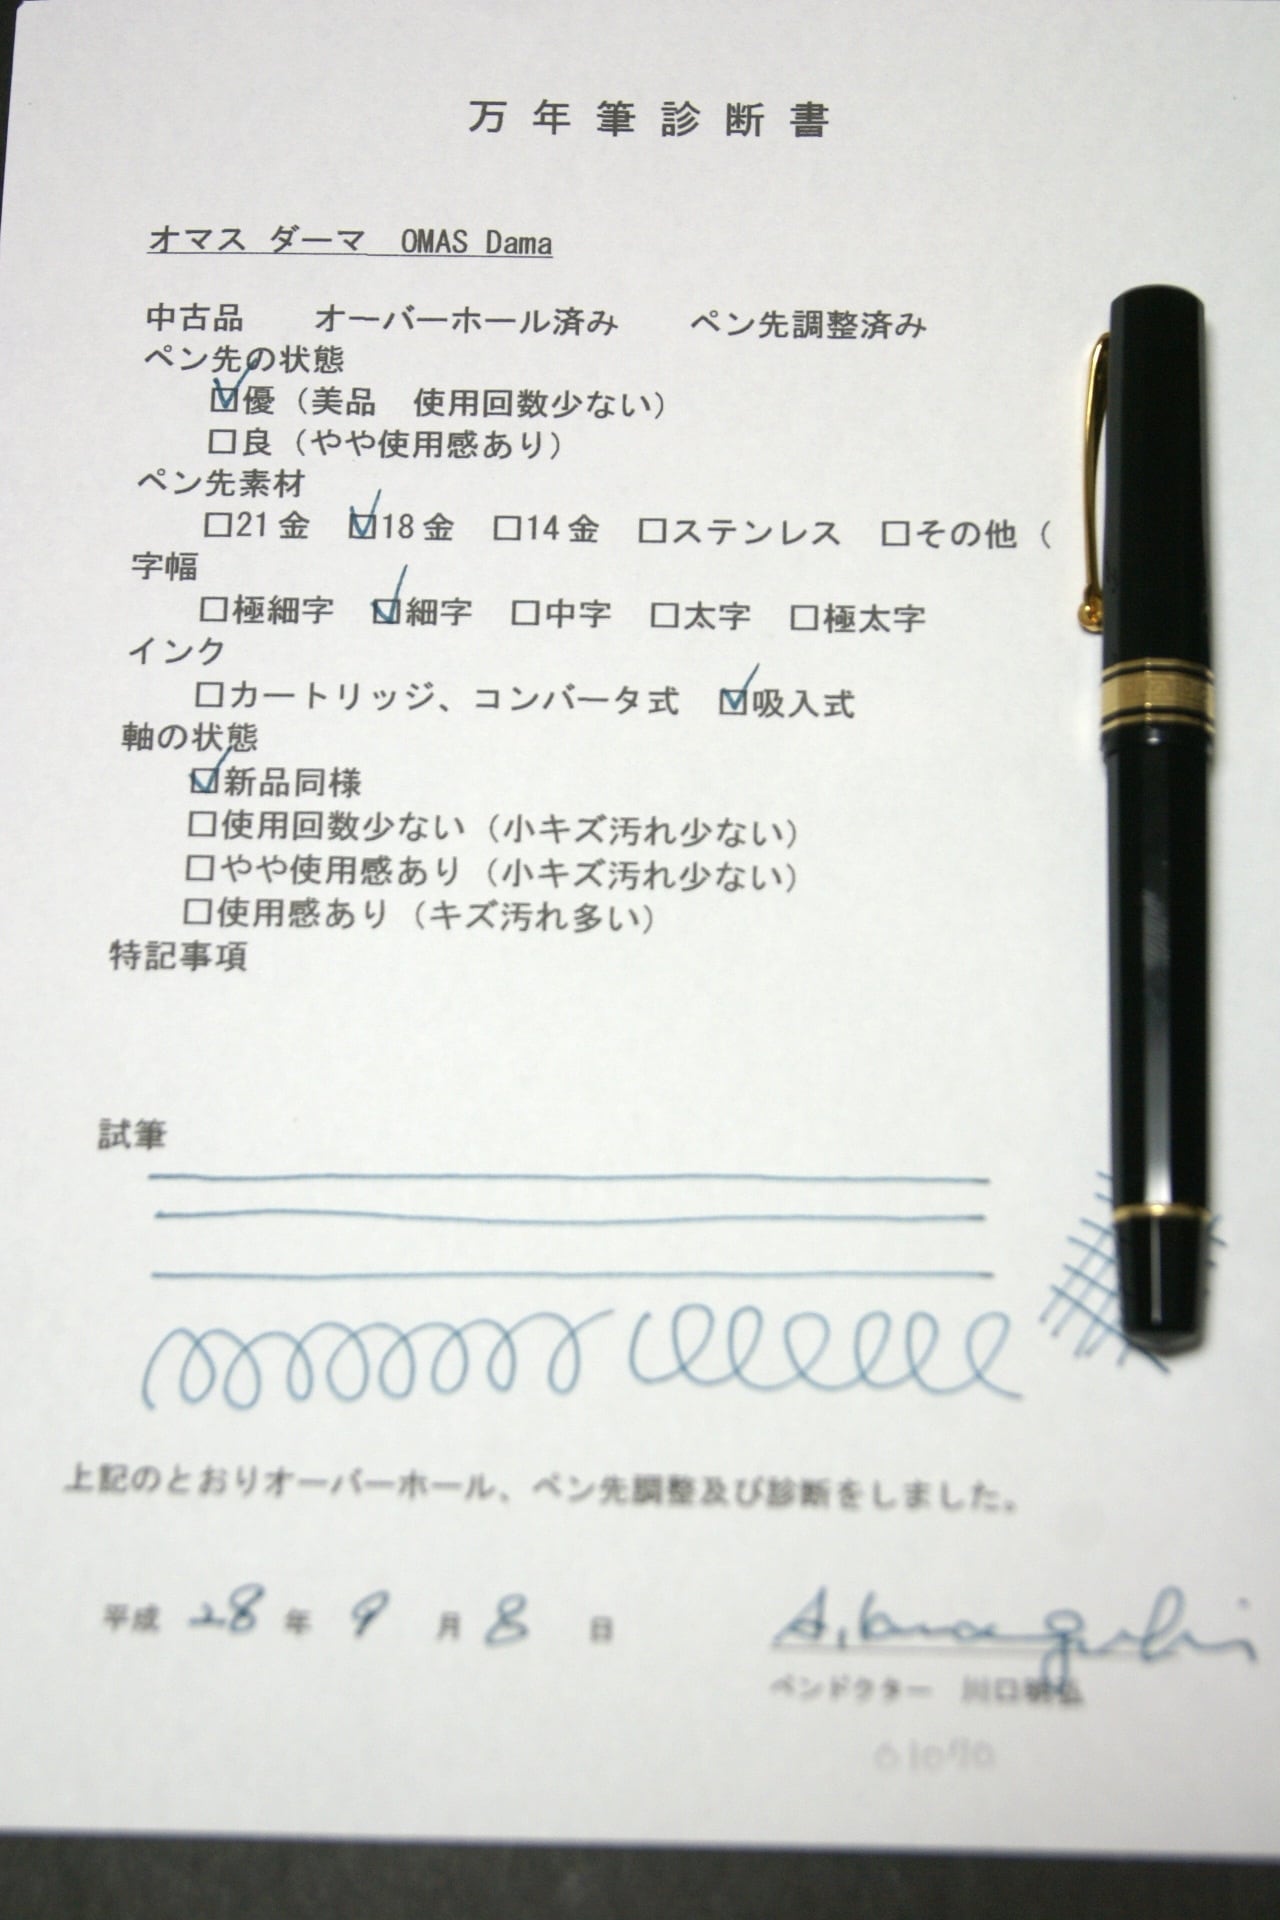 万年筆診断書
オマス ダーマ OMAS Dama
中古品 オーバーホール済み ペン先調整済み
ペン先の状態
☑優（美品 使用回数少ない）
□良（やや使用感あり）
ペン先素材
□21金 ☑18金 □14金 □ステンレス □その他（
字幅
□極細字 ☑細字 □中字 □太字 □極太字
インク
□カートリッジ、コンバータ式 ☑吸入式
軸の状態
☑新品同様
□使用回数少ない（小キズ汚れ少ない）
□やや使用感あり（小キズ汚れ少ない）
□使用感あり（キズ汚れ多い）
特記事項
試筆
上記のとおりオーバーホール、ペン先調整及び診断をしました。
平成 28 年 9 月 8 日
ペンドクター 川口